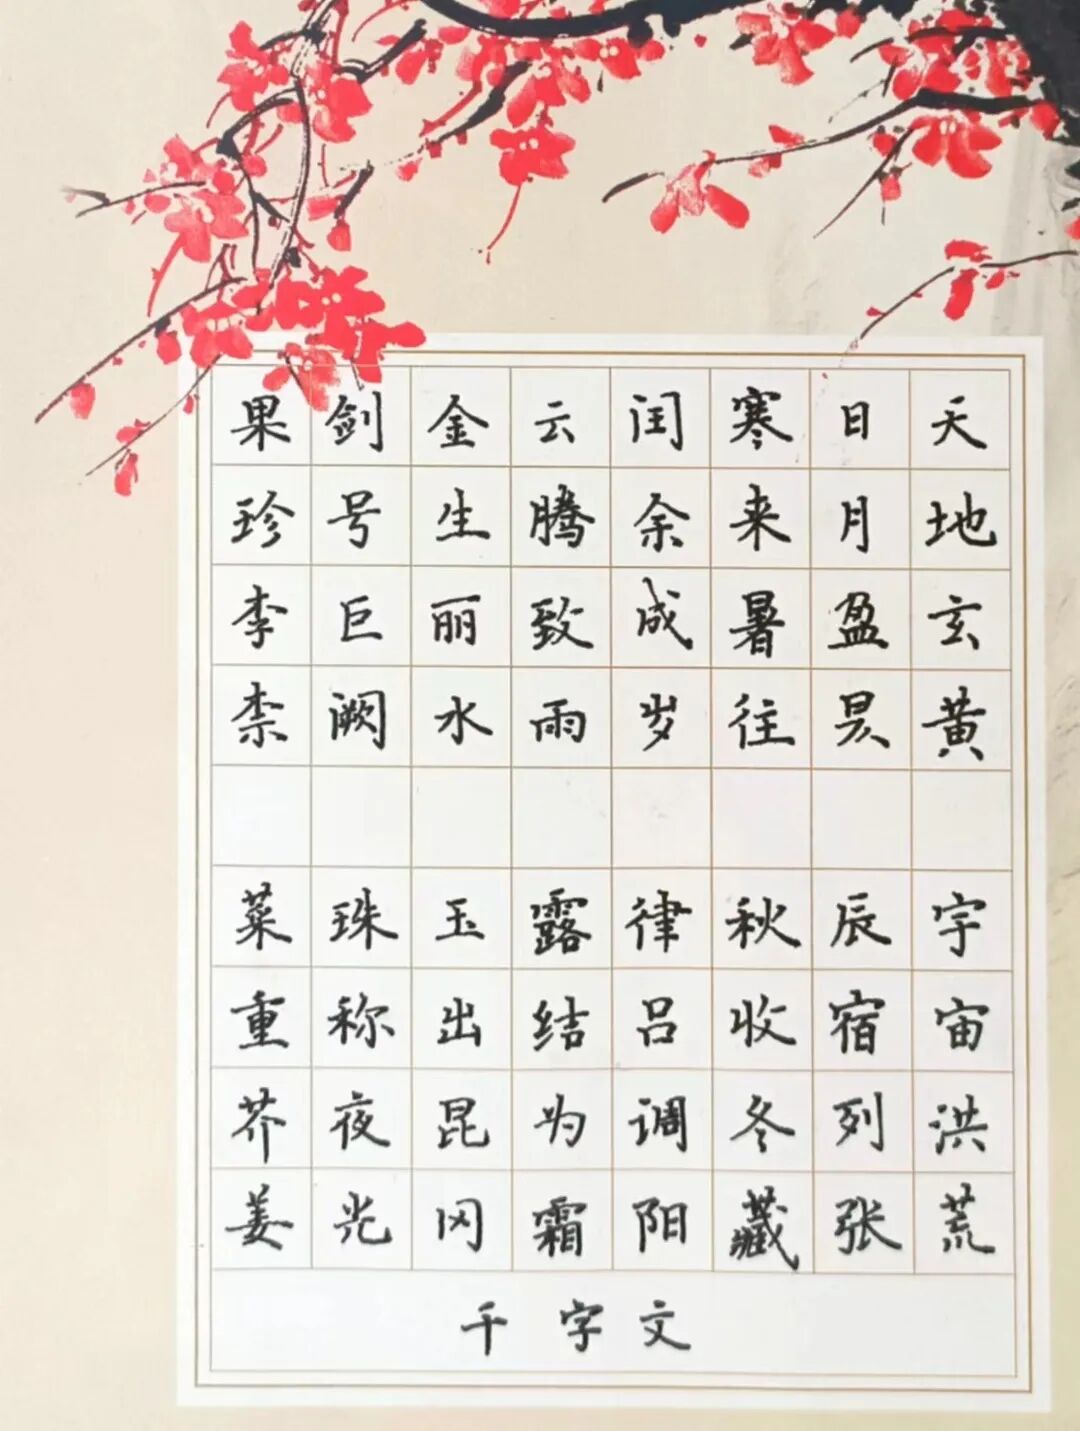 天地玄黄 宇宙洪荒
日月盈昃 辰宿列张
寒来暑往 秋收冬藏
闰余成岁 律吕调阳
云腾致雨 露结为霜
金生丽水 玉出昆冈
剑号巨阙 珠称夜光
果珍李柰 菜重芥姜
千字文